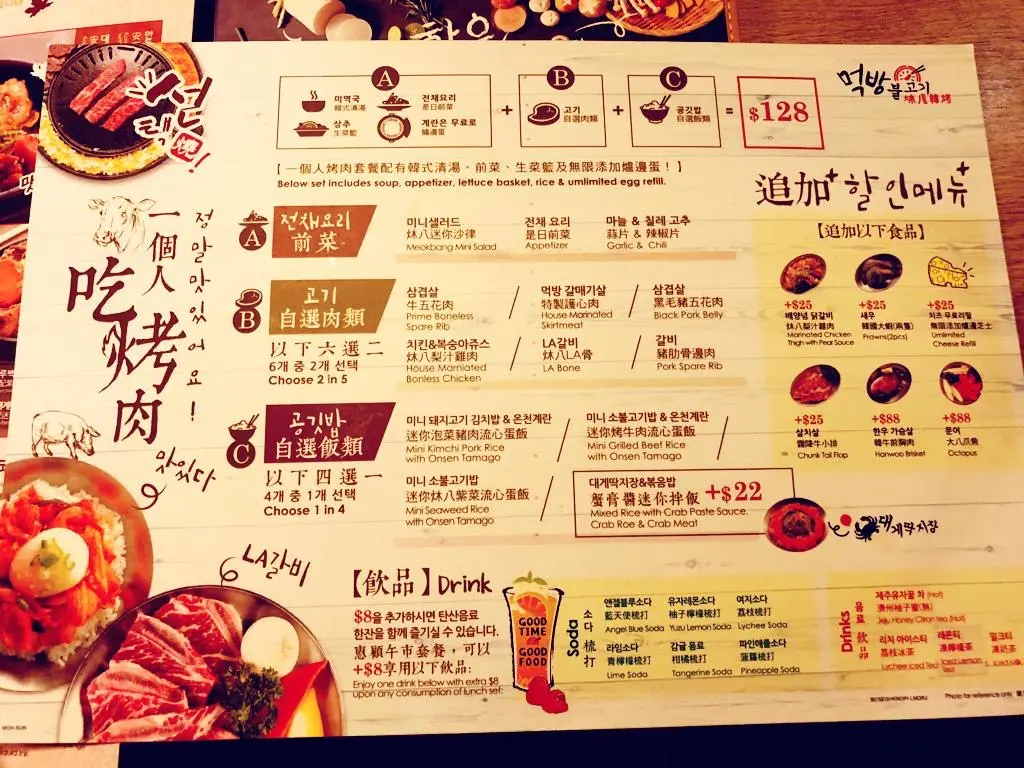 석쇠
A
B
C
미역국
韓式清湯
전채요리
是日前菜
상추
生菜籃
계란은 무료로
爐邊蛋
+
고기
自選肉類
+
공깃밥
自選飯類
=
$128
먹방
불고기
炑八韓烤
【一個人烤肉套餐配有韓式清湯、前菜、生菜籃及無限添加爐邊蛋！】
Below set includes soup, appetizer, lettuce basket, rice & umlimited egg refill.
一個人
吃烤肉
정말맛있어요!
맛있다
LA갈비
A
전채요리
前菜
미니샐러드
炑八迷你沙律
Meokbang Mini Salad
전채 요리
是日前菜
Appetizer
마늘 & 칠레 고추
蒜片 & 辣椒片
Garlic & Chili
B
고기
自選肉類
以下六選二
6개 중 2개 선택
Choose 2 in 5
삼겹살
牛五花肉
Prime Boneless
Spare Rib
먹방 갈매기살
特製護心肉
House Marinated
Skirtmeat
삼겹살
黑毛豬五花肉
Black Pork Belly
치킨&복숭아쥬스
炑八梨汁雞肉
House Marniated
Bonless Chicken
LA갈비
炑八LA骨
LA Bone
갈비
豬肋骨邊肉
Pork Spare Rib
C
공깃밥
自選飯類
以下四選一
4개 중 1개 선택
Choose 1 in 4
미니 돼지고기 김치밥 & 온천계란
迷你泡菜豬肉流心蛋飯
Mini Kimchi Pork Rice
with Onsen Tamago
미니 소불고기밥 & 온천계란
迷你烤牛肉流心蛋飯
Mini Grilled Beef Rice
with Onsen Tamago
미니 소불고기밥
迷你炑八紫菜流心蛋飯
Mini Seaweed Rice
with Onsen Tamago
대게딱지장&볶음밥
蟹膏醬迷你拌飯 +$22
Mixed Rice with Crab Paste Sauce,
Crab Roe & Crab Meat
대게딱지장
追加+ 할인메뉴+
【追加以下食品】
+$25
배양념 닭갈비
炑八梨汁雞肉
Marinated Chicken
Thigh with Pear Sauce
+$25
새우
韓國大蝦(兩隻)
Prawns(2pcs)
+$25
치즈 무료리필
無限添加爐邊芝士
Unlimited
Cheese Refill
+$25
살치살
霜降牛小排
Chunk Tail Flop
+$88
한우 가슴살
韓牛前胸肉
Hanwoo Brisket
+$88
문어
大八爪魚
Octopus
【飲品】Drink
$8을 추가하시면 탄산음료
한잔을 함께 즐기실 수 있습니다.
惠顧午市套餐，可以
+$8享用以下飲品：
Enjoy one drink below with extra $8
upon any consumption of lunch set:
GOOD
TIME
GOOD
FOOD
소다
Soda
梳打
앤젤블루소다
藍天使梳打
Angel Blue Soda
유자레몬소다
柚子檸檬梳打
Yuzu Lemon Soda
여지소다
荔枝梳打
Lychee Soda
라임소다
青檸檬梳打
Lime Soda
감귤 음료
柑橘梳打
Tangerine Soda
파인애플소다
菠蘿梳打
Pineapple Soda
음료
Drinks
飲品
제주유자꿀 차 (Hot)
濟州柚子蜜(熱)
Jeju Honey Citron Tea (Hot)
리치 아이스타
荔枝冰茶
Lychee Iced Tea
레몬티
凍檸檬茶
Iced Lemon
Tea
밀크티
凍奶茶
Photo for reference only
MON-SUN